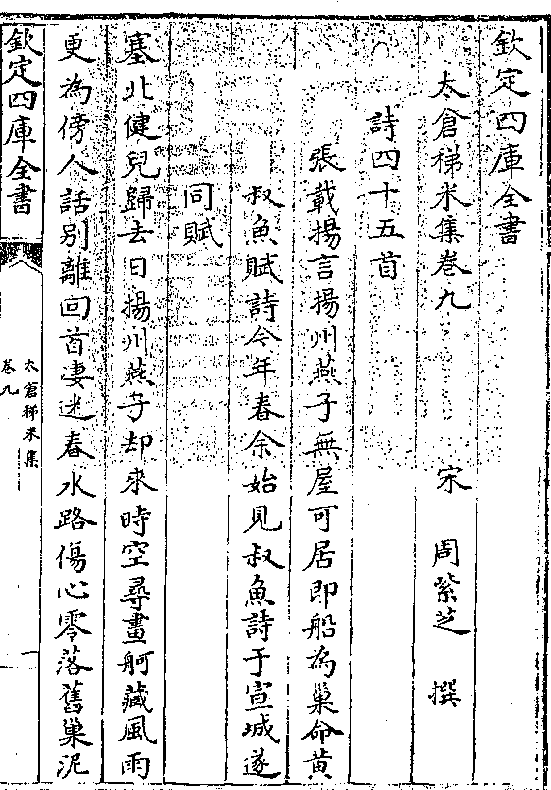 欽定四庫全書
太倉稊米集卷九
宋　周紫芝　撰
詩四十五首
張載揚言揚州燕子無屋可居即船為巢命黄
叔魚賦詩今年春余始見叔魚詩于宣城遂
同賦
塞北健兒歸去日揚州燕子却來時空尋畫舸藏風雨
更為傍人話别離回首凄迷春水路傷心零落舊巢泥
欽定四庫全書
太倉稊米集
卷九
一